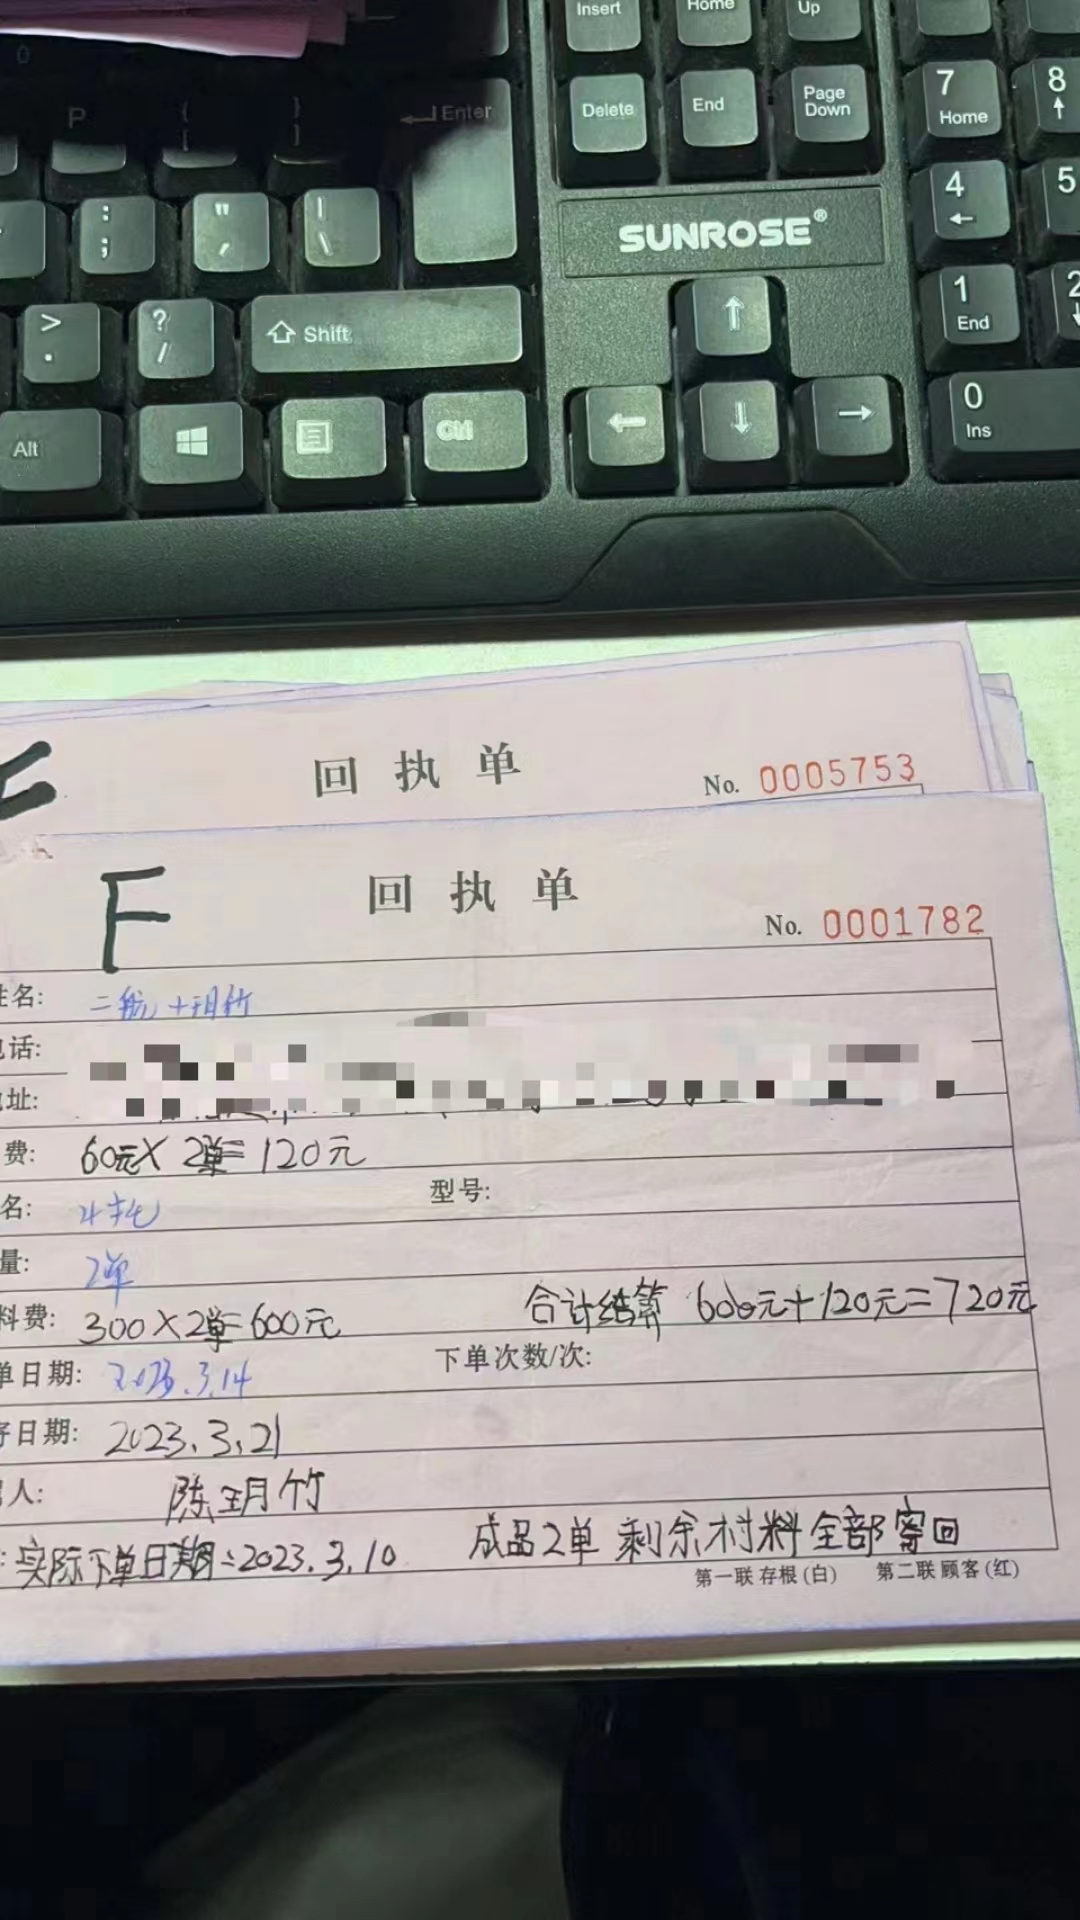 Insert Home Up
P { [ } ] Enter Delete End Page Down 7 Home 8
: ; " ' | \ SUNROSE® 4 5
> . ? / Shift 1 End 2
Alt Ctrl 0 Ins
回执单 No. 0005753
F 回执单 No. 0001782
姓名: 二航+玥竹
电话:
地址:
费: 60元×2单=120元
名: 型号:
量: 2单
料费: 300×2单=600元 合计结算 600元+120元=720元
单日期: 2023.3.14 下单次数/次:
寄日期: 2023.3.21
人: 陈玥竹
实际下单日期:2023.3.10 成品2单 剩余材料全部寄回
第一联 存根(白) 第二联 顾客(红)